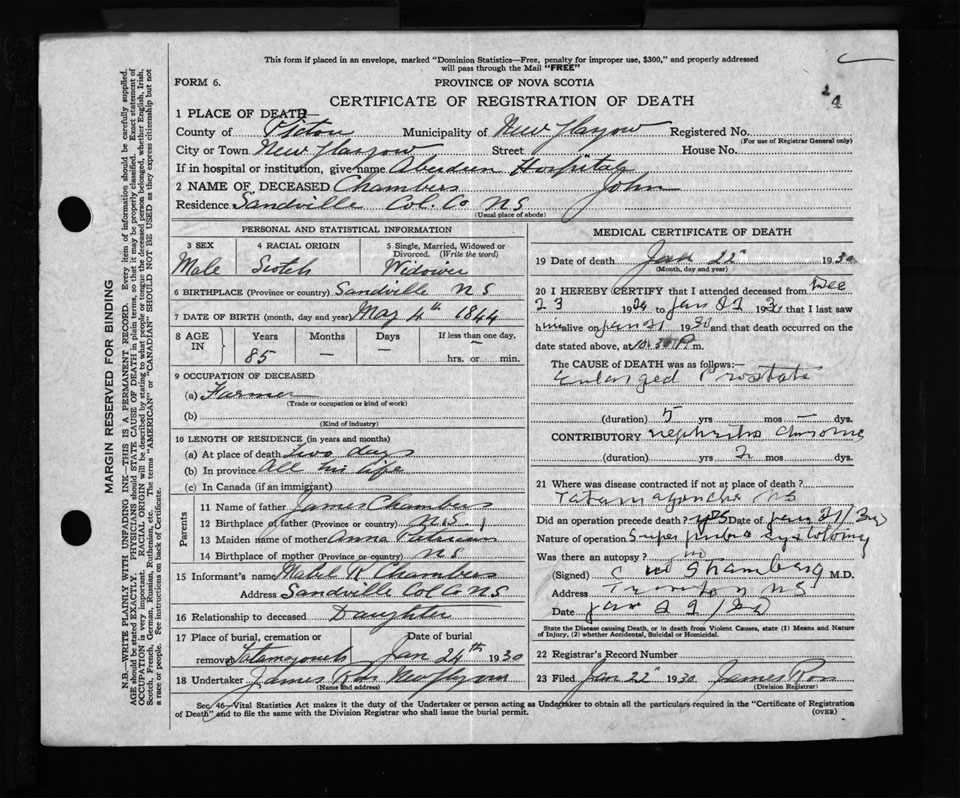 This form if placed in an envelope, marked "Dominion Statistics—Free, penalty for improper use, $300," and properly addressed
will pass through the Mail "FREE"
FORM 6.
PROVINCE OF NOVA SCOTIA
CERTIFICATE OF REGISTRATION OF DEATH
1 PLACE OF DEATH—
County of Pictou Municipality of New Glasgow Registered No.
(For use of Registrar General only)
City or Town New Glasgow Street House No.
If in hospital or institution, give name Aberdeen Hospital
2 NAME OF DECEASED Chambers John
Residence Sandville Col. Co N S
(Usual place of abode)
PERSONAL AND STATISTICAL INFORMATION
3 SEX 4 RACIAL ORIGIN 5 Single, Married, Widowed or Divorced. (Write the word)
Male Scotch Widower
6 BIRTHPLACE (Province or country) Sandville N S
7 DATE OF BIRTH (month, day and year) May 4th 1844
8 AGE IN Years Months Days If less than one day,
85 — — — hrs. or min.
9 OCCUPATION OF DECEASED
(a) Farmer
(Trade or occupation or kind of work)
(b)
(Kind of industry)
10 LENGTH OF RESIDENCE (in years and months)
(a) At place of death Two days
(b) In province All his life
(c) In Canada (if an immigrant)
Parents
11 Name of father James Chambers
12 Birthplace of father (Province or country) N.S.
13 Maiden name of mother Anna
14 Birthplace of mother (Province or country) N S
15 Informant's name Mabel K Chambers
Address Sandville Col Co N S
16 Relationship to deceased Daughter
17 Place of burial, cremation or removal Date of burial
Jan 24th 1930
18 Undertaker James Ross New Glasgow
(Name and address)
MEDICAL CERTIFICATE OF DEATH
19 Date of death Jan 22" 1930
(Month, day and year)
20 I HEREBY CERTIFY that I attended deceased from Dec
23 1929 to Jan 21 1930 that I last saw
him alive on Jan 21 1930 and that death occurred on the
date stated above, at 10.30 P m.
The CAUSE OF DEATH was as follows:—
Enlarged Prostate
(duration) 5 yrs — mos — dys.
CONTRIBUTORY nephritis chronic
(duration) yrs 2 mos dys.
21 Where was disease contracted if not at place of death?
Tatamagouche NS
Did an operation precede death? yes Date of Jan 21/30
Nature of operation Supra pubic cystotomy
Was there an autopsy? no
(Signed) M.D.
Address NS
Date Jan 22/30
State the Disease causing Death, or in death from Violent Causes, state (1) Means and Nature
of Injury, (2) whether Accidental, Suicidal or Homicidal.
22 Registrar's Record Number
23 Filed Jan 22" 1930 James Ross
(Division Registrar)
Sec. 46—Vital Statistics Act makes it the duty of the Undertaker or person acting as Undertaker to obtain all the particulars required in the "Certificate of Registration
of Death" and to file the same with the Division Registrar who shall issue the burial permit.
(OVER)
MARGIN RESERVED FOR BINDING
N.B.—WRITE PLAINLY WITH UNFADING INK—THIS IS A PERMANENT RECORD. Every item of information should be carefully supplied.
AGE should be stated EXACTLY. PHYSICIANS should STATE CAUSE OF DEATH in plain terms, so that it may be properly classified. Exact statement of
OCCUPATION is very important. RACIAL ORIGIN will be described by stating to what people or tongue the deceased person belonged, whether English, Irish,
Scotch, French, German, Russian, Ruthenian, etc. The terms "AMERICAN" or "CANADIAN" SHOULD NOT BE USED as they express citizenship but not
a race or people. See instructions on back of Certificate.